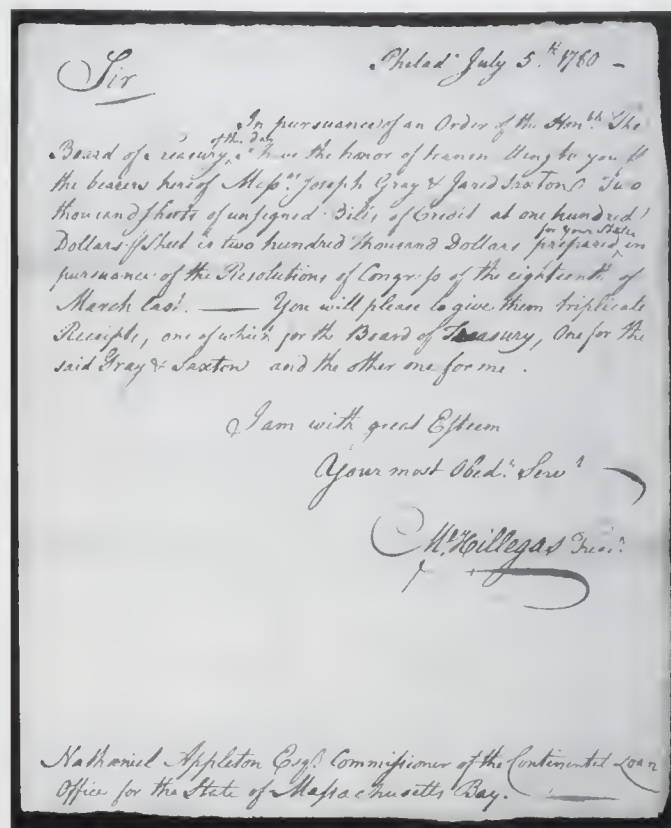 Sir
Philad.ᵃ July 5.ᵗʰ 1780 –
In pursuance of an Order of the Hon.ᵇˡᵉ The
of this day
Board of Treasury, I have the honor of transmitting to you ⅌
the bearers hereof Mess.ʳˢ Joseph Gray & Jared Saxton Two
thousand sheets of unsigned Bills of Credit at one hundred
Dollars ⅌ Sheet is two hundred thousand Dollars prepared in
for your State
pursuance of the Resolutions of Congress of the eighteenth of
March last. — You will please to give them triplicate
Receipts, one of which for the Board of Treasury, One for the
said Gray & Saxton and the other one for me.
I am with great Esteem
Your most Obed.ᵗ Serv.ᵗ
M. Hillegas Treas.ʳ
Nathaniel Appleton Esq.ʳ Commissioner of the Continental Loan
Office for the State of Massachusetts Bay.